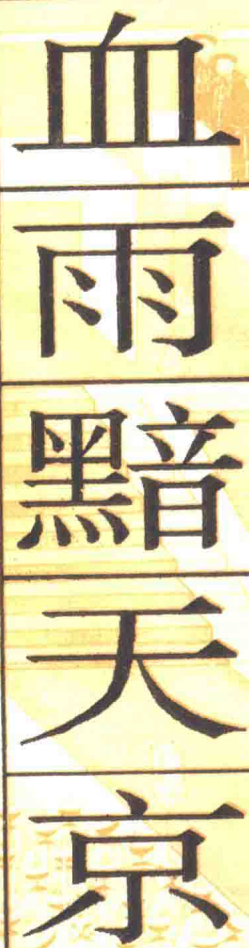 血雨黯天京